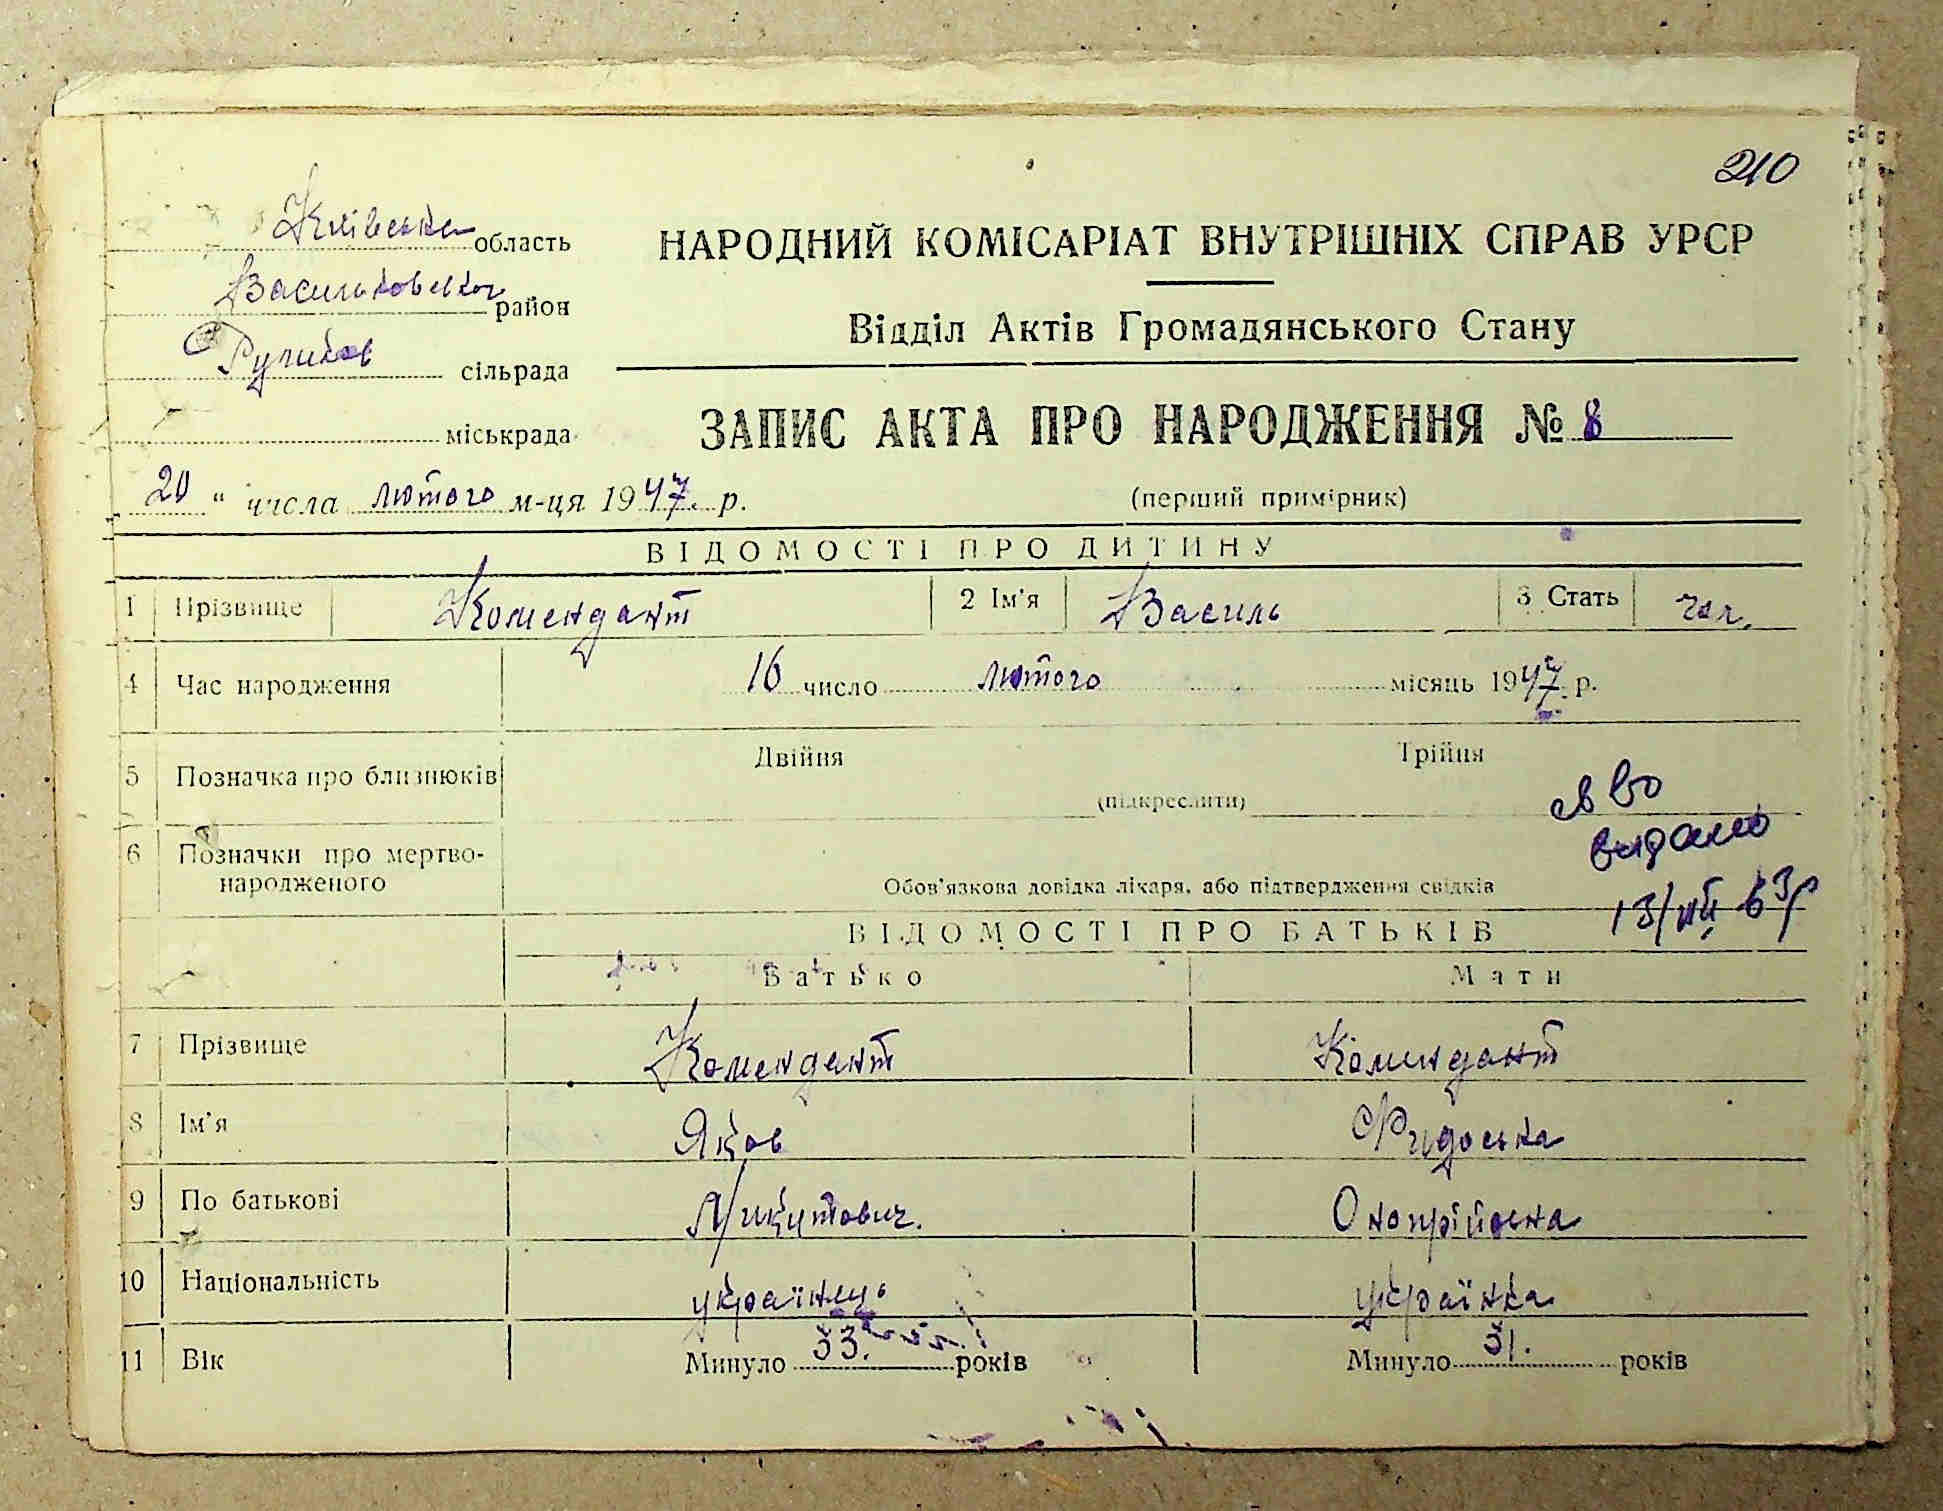 210
Київська область
Васильковський район
Рулików сільрада
міськрада
НАРОДНИЙ КОМІСАРІАТ ВНУТРІШНІХ СПРАВ УРСР
Відділ Актів Громадянського Стану
ЗАПИС АКТА ПРО НАРОДЖЕННЯ № 8
20 " числа лютого м-ця 1947. р.
(перший примірник)
ВІДОМОСТІ ПРО ДИТИНУ
1 Прізвище Комендант 2 Ім'я Василь 3 Стать чол.
4 Час народження 16 число лютого місяць 1947. р.
5 Позначка про близнюків Двійня Трійня
(підкреслити)
св во
видано
6 Позначки про мертво-
народженого
Обов'язкова довідка лікаря, або підтвердження свідків
13/ 63р
ВІДОМОСТІ ПРО БАТЬКІВ
Батько Мати
7 Прізвище Комендант Комендант
8 Ім'я Яков Фидоська
9 По батькові Микитович. Онопрійовна
10 Національність українець українка
11 Вік Минуло 33. років Минуло 31. років